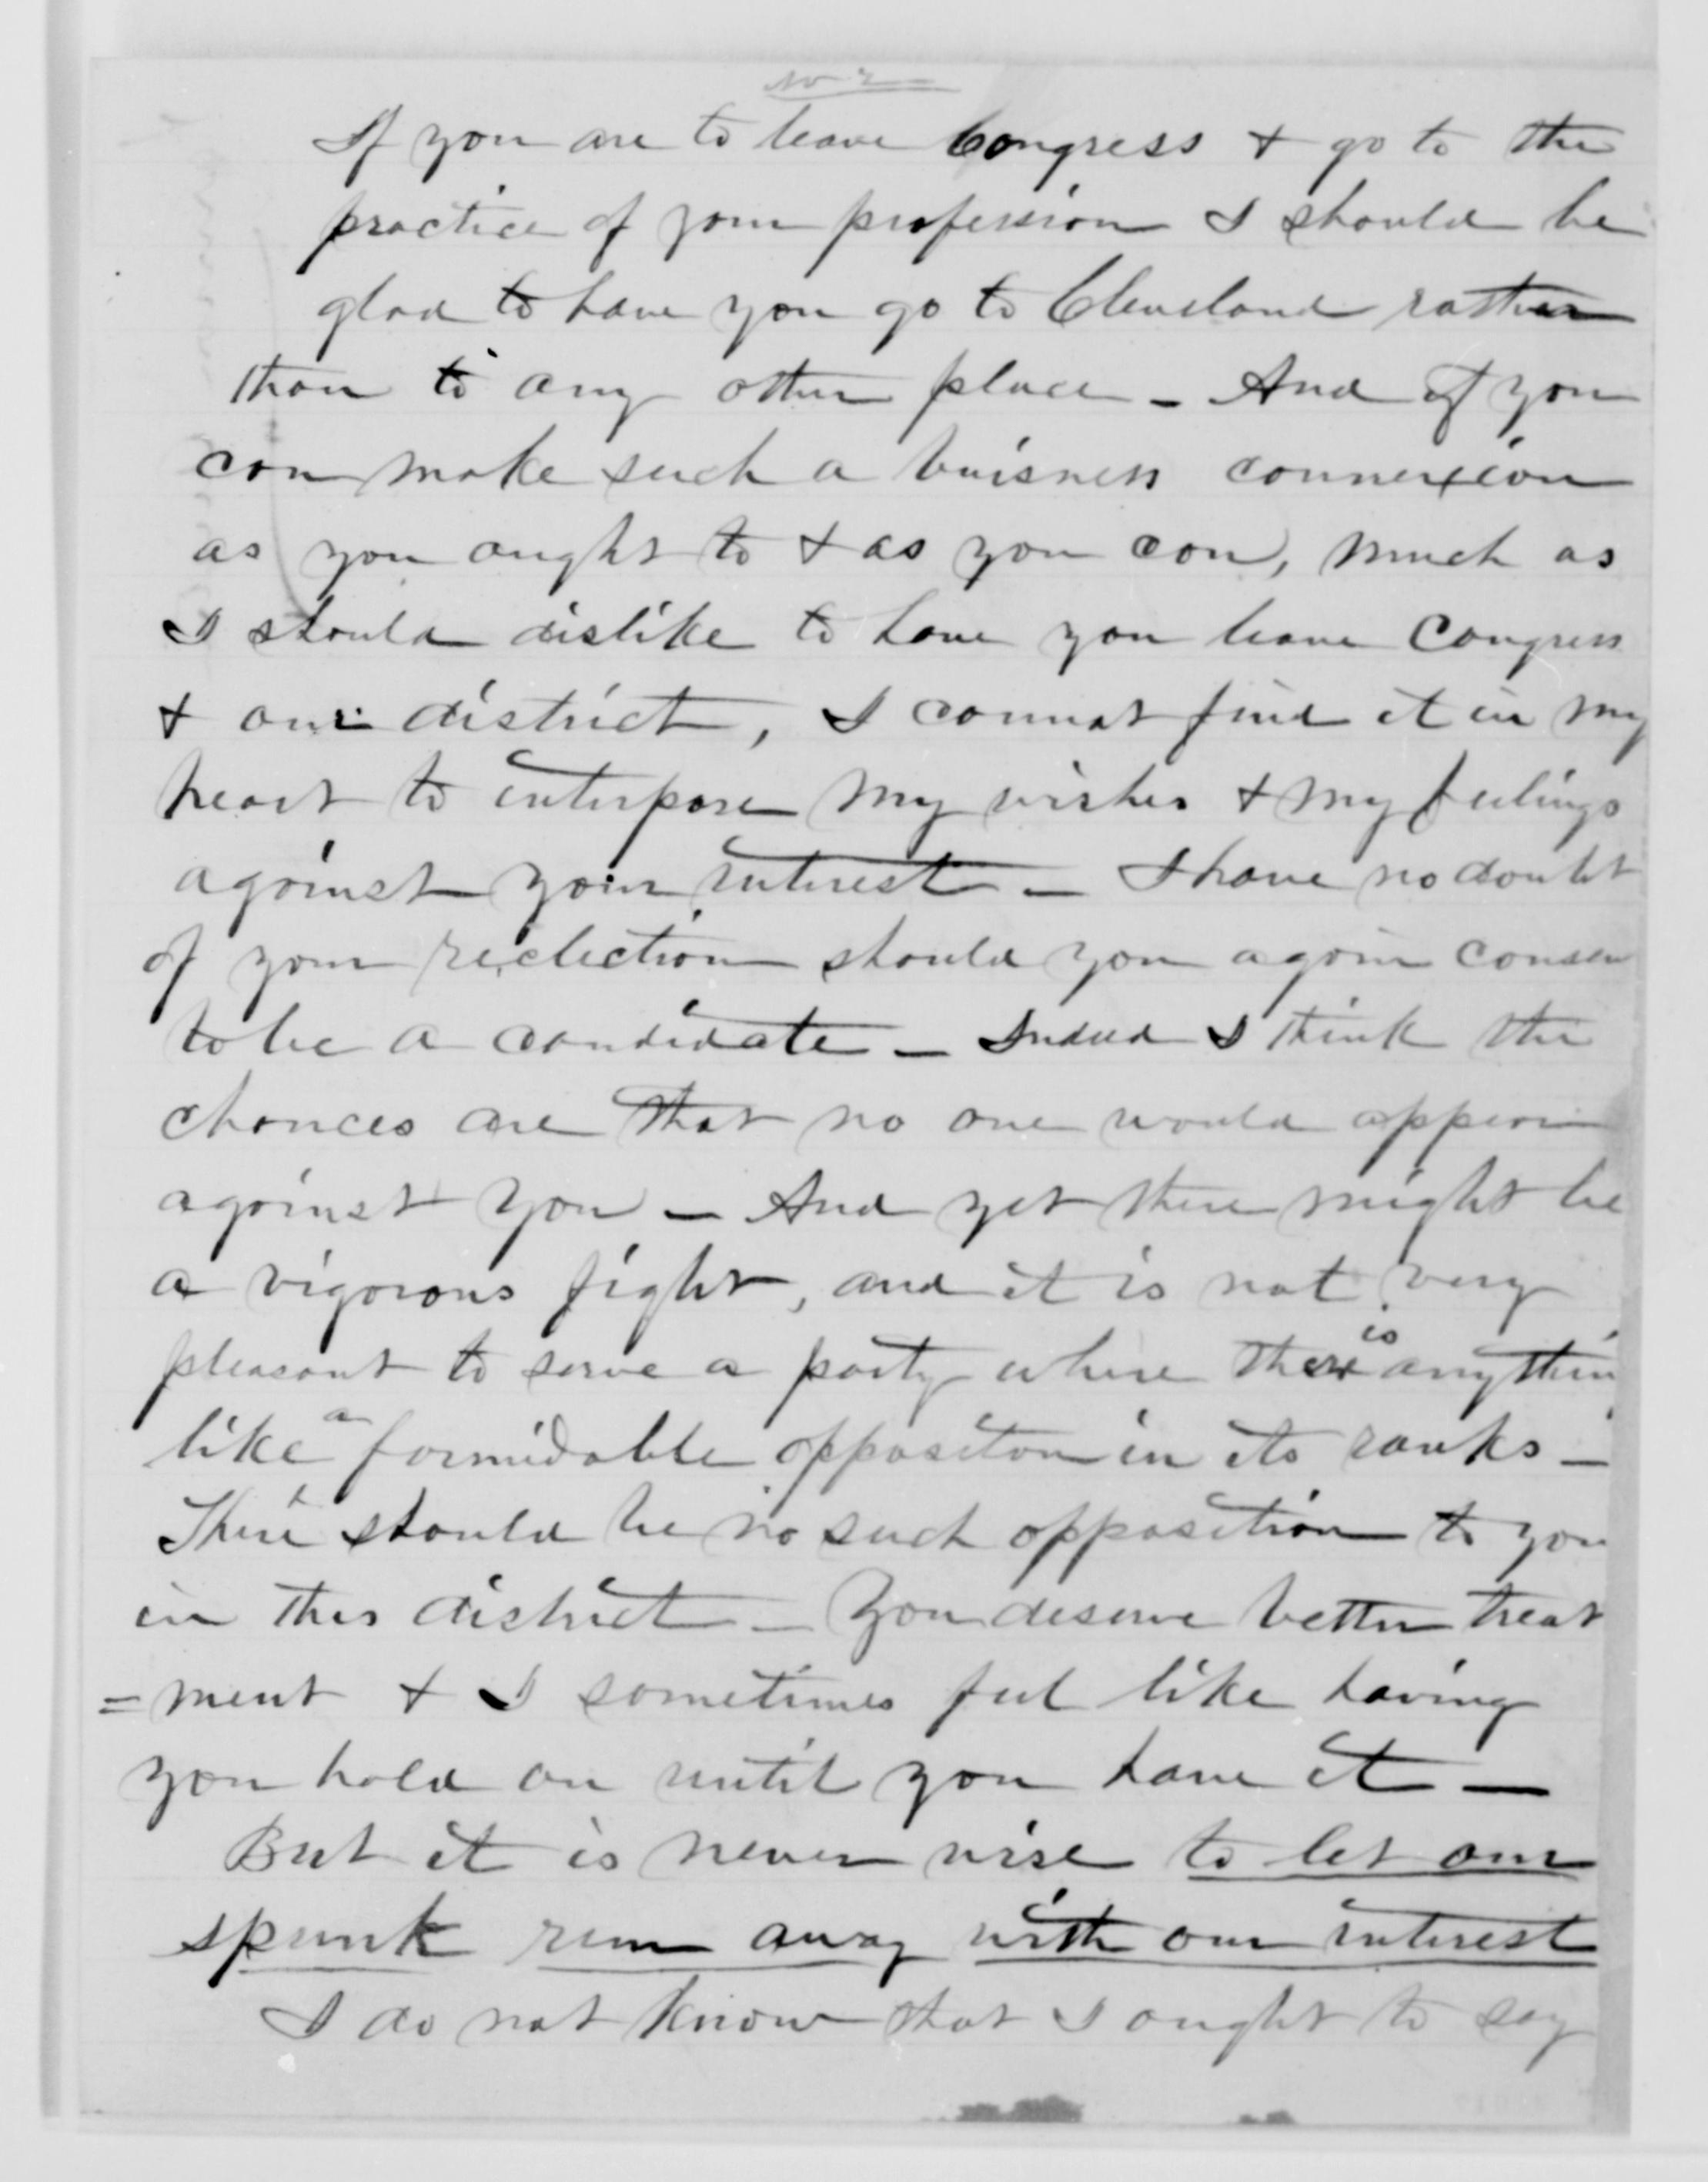 No 2
If you are to leave Congress & go to the
practice of your profession I should be
glad to have you go to Cleveland rather
than to any other place - And if you
can make such a buisness connexion
as you ought to & as you can, much as
I should dislike to have you leave Congress
& our district, I cannot find it in my
heart to interpose my wishes & my feelings
against your interest - I have no doubt
of your reelection should you again consen
to be a candidate - Indeed I think the
chances are that no one would appear
against you - And yet there might be
a vigorous fight, and it is not very
pleasant to serve a party where there is anythin
like a formidable oppositon in its ranks -
There should be no such opposition to you
in this district - You deserve better treat
=ment & I sometimes feel like having
you hold on until you have it -
But it is never wise to let our
spunk run away with our interest
I do not know that I ought to say